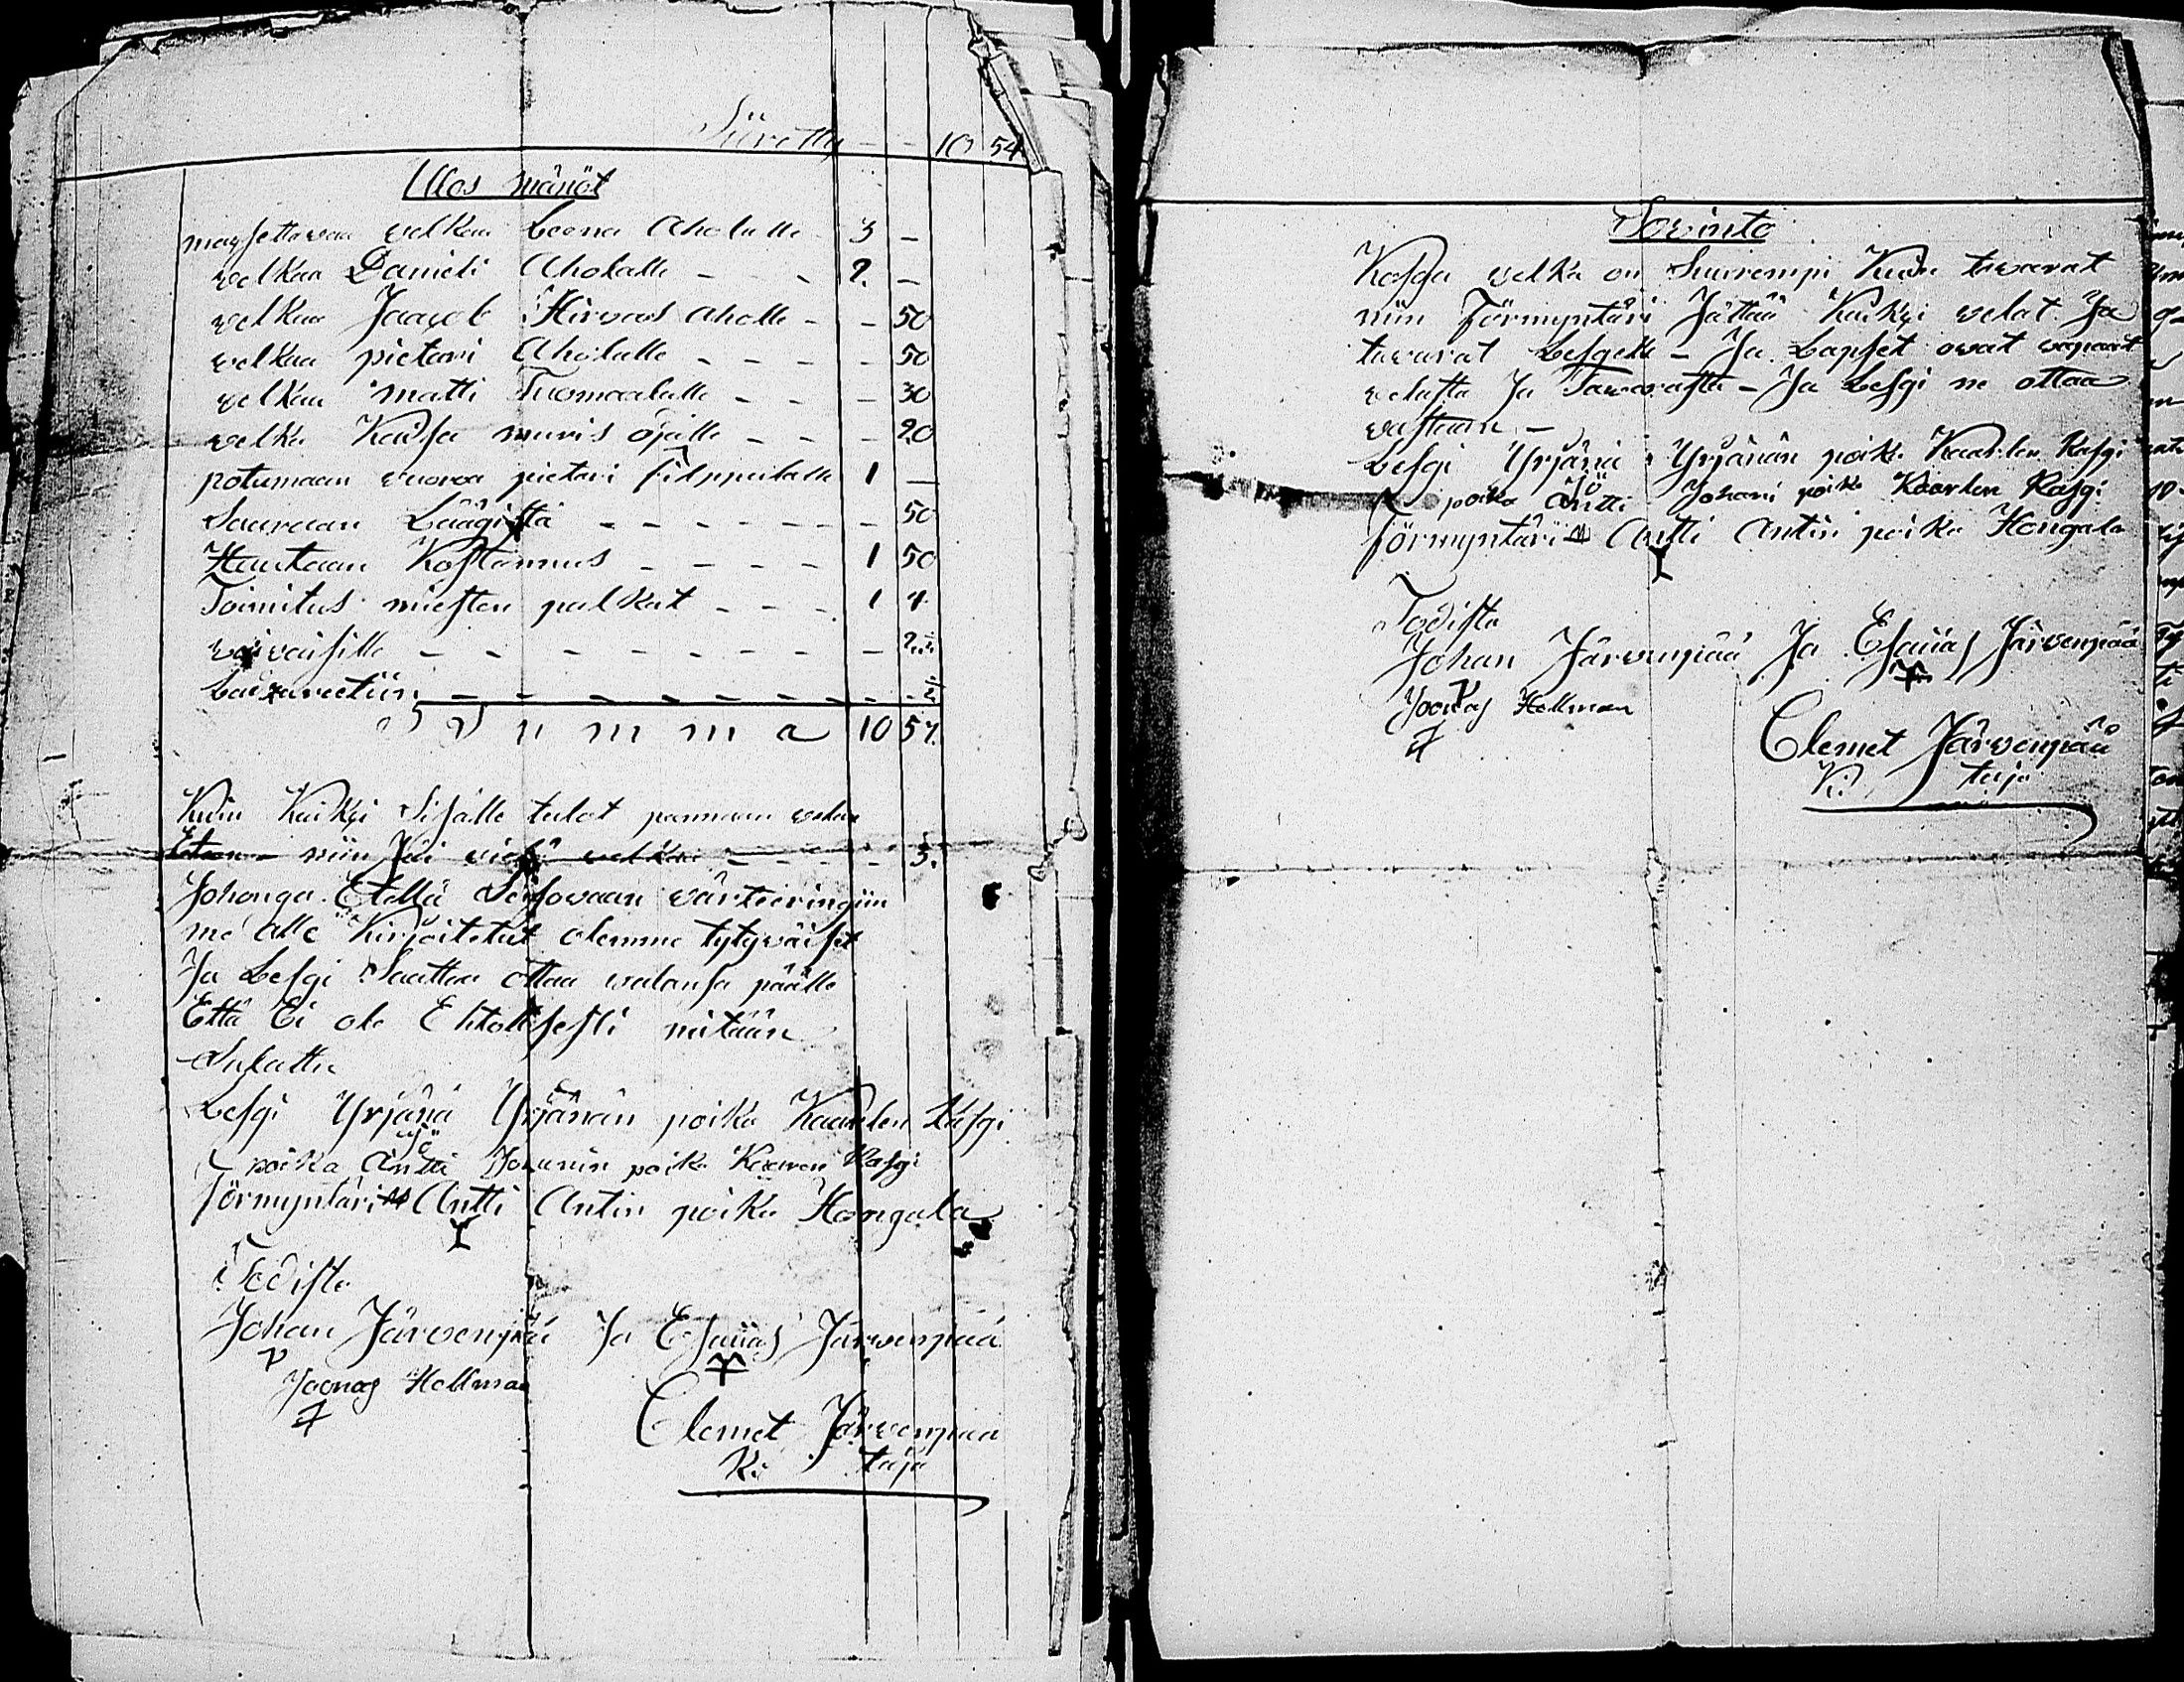 Siiretty - - 10 54
Ulos mänöt
mayſettavaa velkaa Leena Aholalle 3 -
velkaa Danieli Aholalle - - - 2. -
velkaa Jaacob Hirvas aholle - - 50
velkaa pietari Aholalle - - - - 50
velkaa matti Tuomaalalle - - - 30
velka Kaiſa muris ojalle - - - 20
potumaan vuoroa pietari filppulalle 1 -
Sauruan Läägiſtä - - - - - - - 50
Hautaan Koſtannus - - - - 1 50
Toimitus mieſten palkat - - - 1 4
vaivaiſille - - - - - - - - 2½
Ladzareetiin - - - - - - - ½
Summa 10 57.
Kuin Kaikki Siſälle tulot pannaan velan
Etteen niin Jää vielä velkaa - - - - 3.
Johonga Etellä Seiſovaan värteeringiin
me alle Kirjoitetut olemme tytyväiſet
Ja Leſgi Saattaa ottaa valanſa päälle
Että Ei ole Ehtolliſeſti mitään
Salattu
Leſgi Yrjänä Yrjänän poika Kaarlen Kaſgi
poika Antti Johanin poika Kaarlen Kaſgi
förmyntäri Antti Antin poika Hongala
Todiſta
Johan Järvenpää Ja Eſaiiaſ Järvenpää
Joonaſ Hellman
Clemet Järvenpää
Ki taja
Sovinto
Koſga velka on Suurempi Kuin tavarat
niin förmyntäri Jättää Kaikki velat Ja
tavarat Leſgelle - Ja Lapſet ovat vapaat
velaſta Ja Tavaraſta - Ja Leſgi ne ottaa
vaſtaan -
Leſgi Yrjänä Yrjänän poika Kaarlen Kaſgi
poika Antti Johani poika Kaarlen Kaſgi
förmyntäri Antti Antin poika Hongala
Todiſta
Johan Järvenpää Ja Eſaiiaſ Järvenpää
Joonaſ Hellman
Clemet Järvenpää
Ki taja